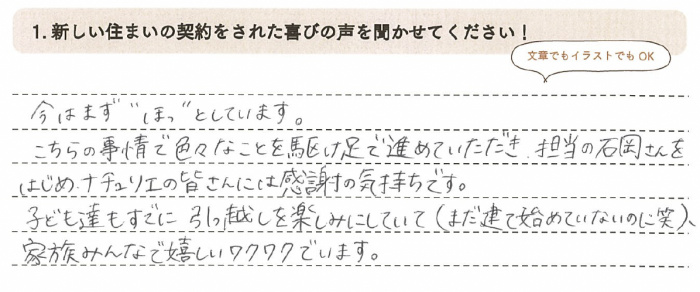 1. 新しい住まいの契約をされた喜びの声を聞かせてください！
文章でもイラストでもOK
今はまず“ほっ”としています。
こちらの事情で色々なことを駆け足で進めていただき、担当の石岡さんを
はじめ、ナチュリエの皆さんには感謝の気持ちです。
子ども達もすでに引っ越しを楽しみにしていて（まだ建て始めていないのに笑）、
家族みんなで嬉しいワクワクでいます。